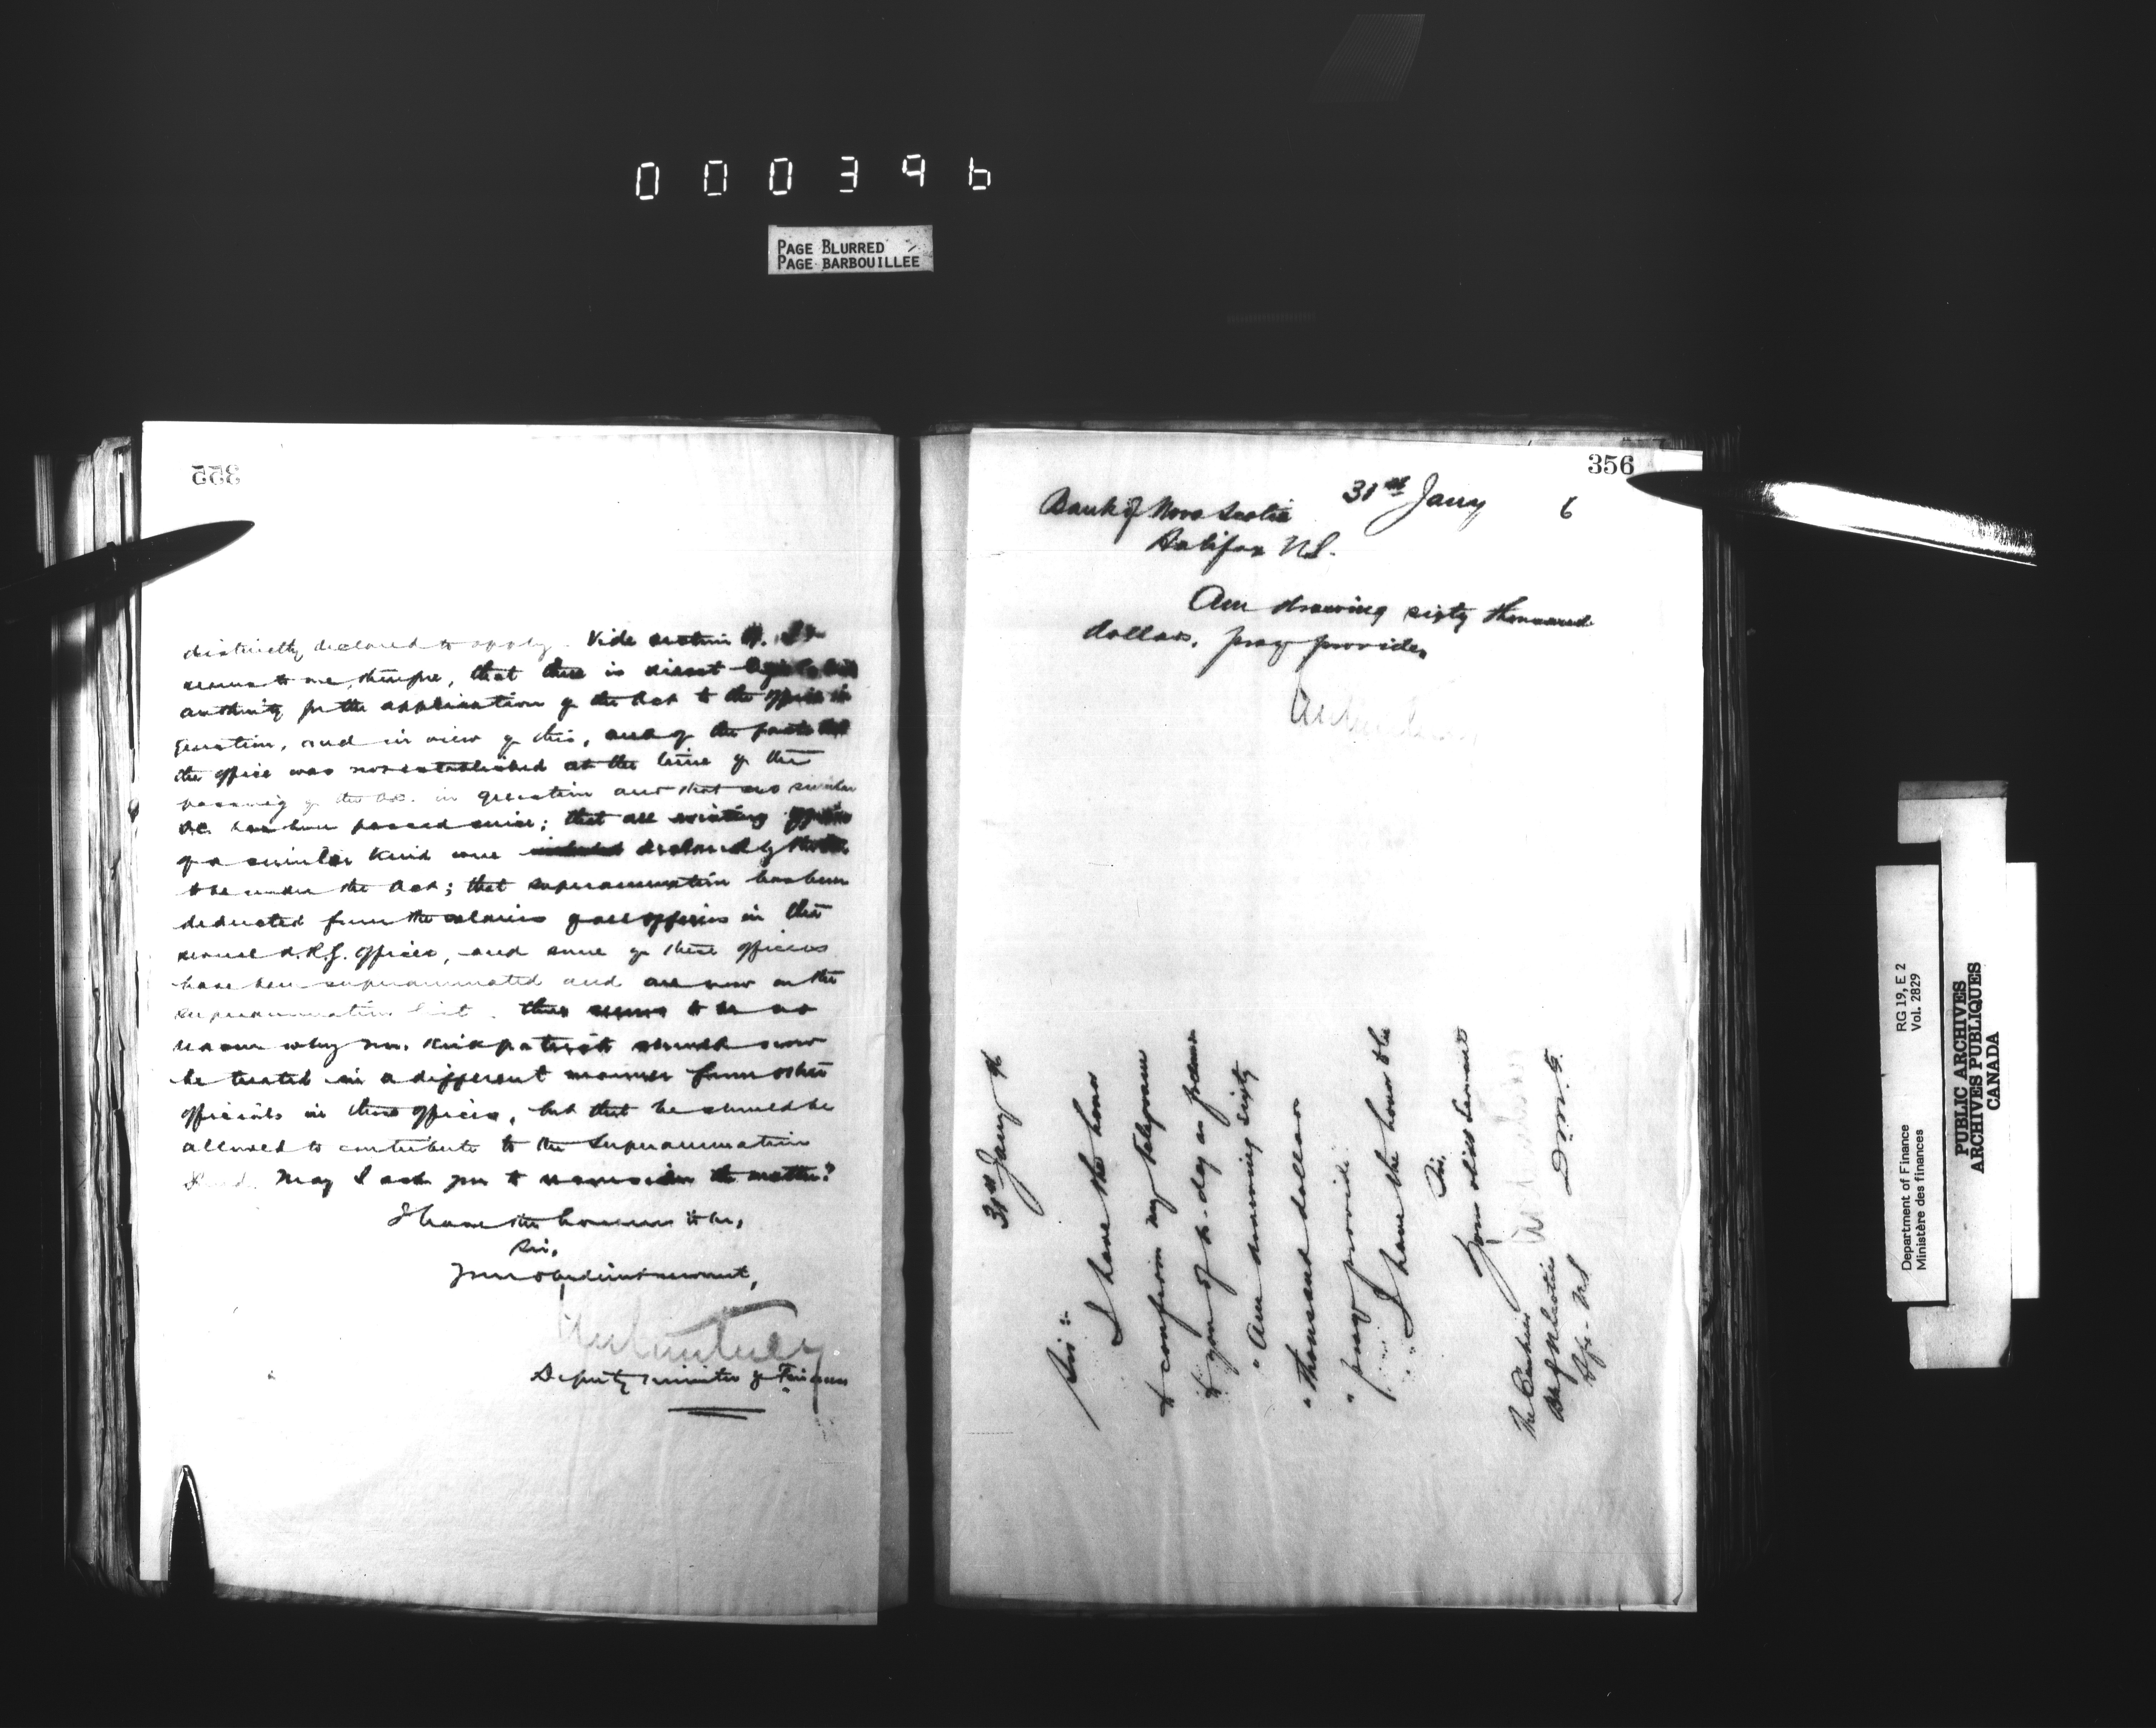 000396
PAGE BLURRED
PAGE BARBOUILLÉE
355
distinctly declared to apply. Vide section 9. It
seems to me, therefore, that there is direct
authority for the application of the Act to the office in
question, and in view of this, and of the fact that
the office was not established at the time of the
passing of the O.C. in question and that no similar
O.C. has been passed since; that all existing offices
of a similar kind were declared by
to be under the Act; that superannuation has been
deducted from the salaries of all officers in the
several A.R.G. offices, and some of these officers
have been superannuated and are now on the
superannuation list. There seems to be no
reason why Mr. Kirkpatrick should now
be treated in a different manner from other
officials in these offices, but that he should be
allowed to contribute to the Superannuation
Fund. May I ask you to reconsider the matter?
I have the honour to be,
Sir,
Your obedient servant,
Deputy Minister of Finance
356
31st Jany 6
Bank of Nova Scotia
Halifax N.S.
Am drawing sixty thousand
dollars, pray provide.
31st Jany 96
Sir:
I have the honor
to confirm my telegram
to you of to-day as follows
"Am drawing sixty
"thousand dollars
"pray provide.
I have the honor to be
Sir,
Your obdt servant
D.M.F.
The Cashier
Bk of N Scotia
Hfx. N S
RG 19, E 2
Vol. 2829
Department of Finance
Ministère des finances
PUBLIC ARCHIVES
ARCHIVES PUBLIQUES
CANADA